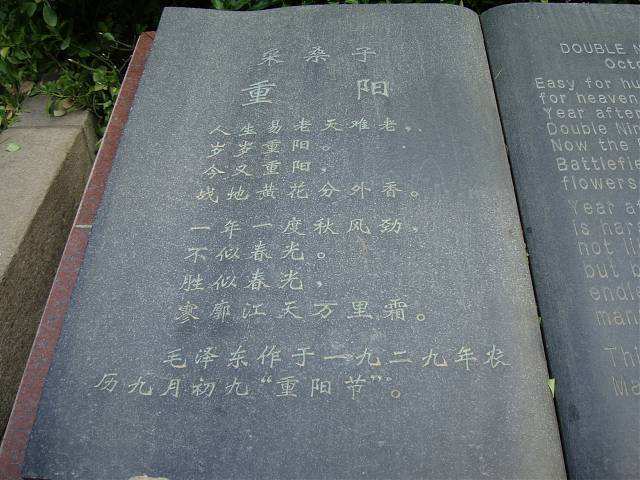 采桑子
重 阳
人生易老天难老，
岁岁重阳。
今又重阳，
战地黄花分外香。
一年一度秋风劲，
不似春光。
胜似春光，
寥廓江天万里霜。
毛泽东作于一九二九年农
历九月初九“重阳节”。
DOUBLE N
Octo
Easy for hu
for heaven
Year after
Double Nin
Now the
Battlefie
flowers
Year af
is har
not li
but
endl
man
Thi
Ma